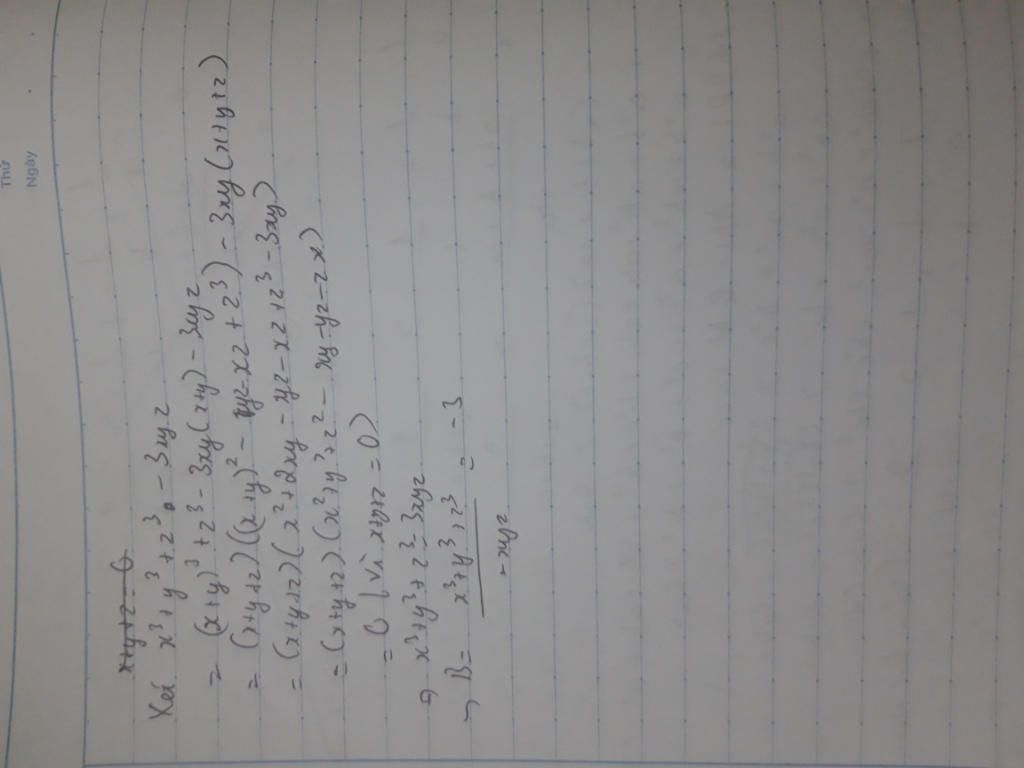 Thứ
Ngày
x+y+z=0
Xét x³+y³+z³-3xyz
= (x+y)³+z³-3xy(x+y)-3xyz
= (x+y+z)((x+y)²-yz-xz+z³)-3xy(x+y+z)
= (x+y+z)(x²+2xy-yz-xz+z³-3xy)
= (x+y+z)(x²+y²+z²-xy-yz-zx)
= 0 (vì x+y+z=0)
→ x³+y³+z³=3xyz
→ B= x³+y³+z³ = -3
-xyz